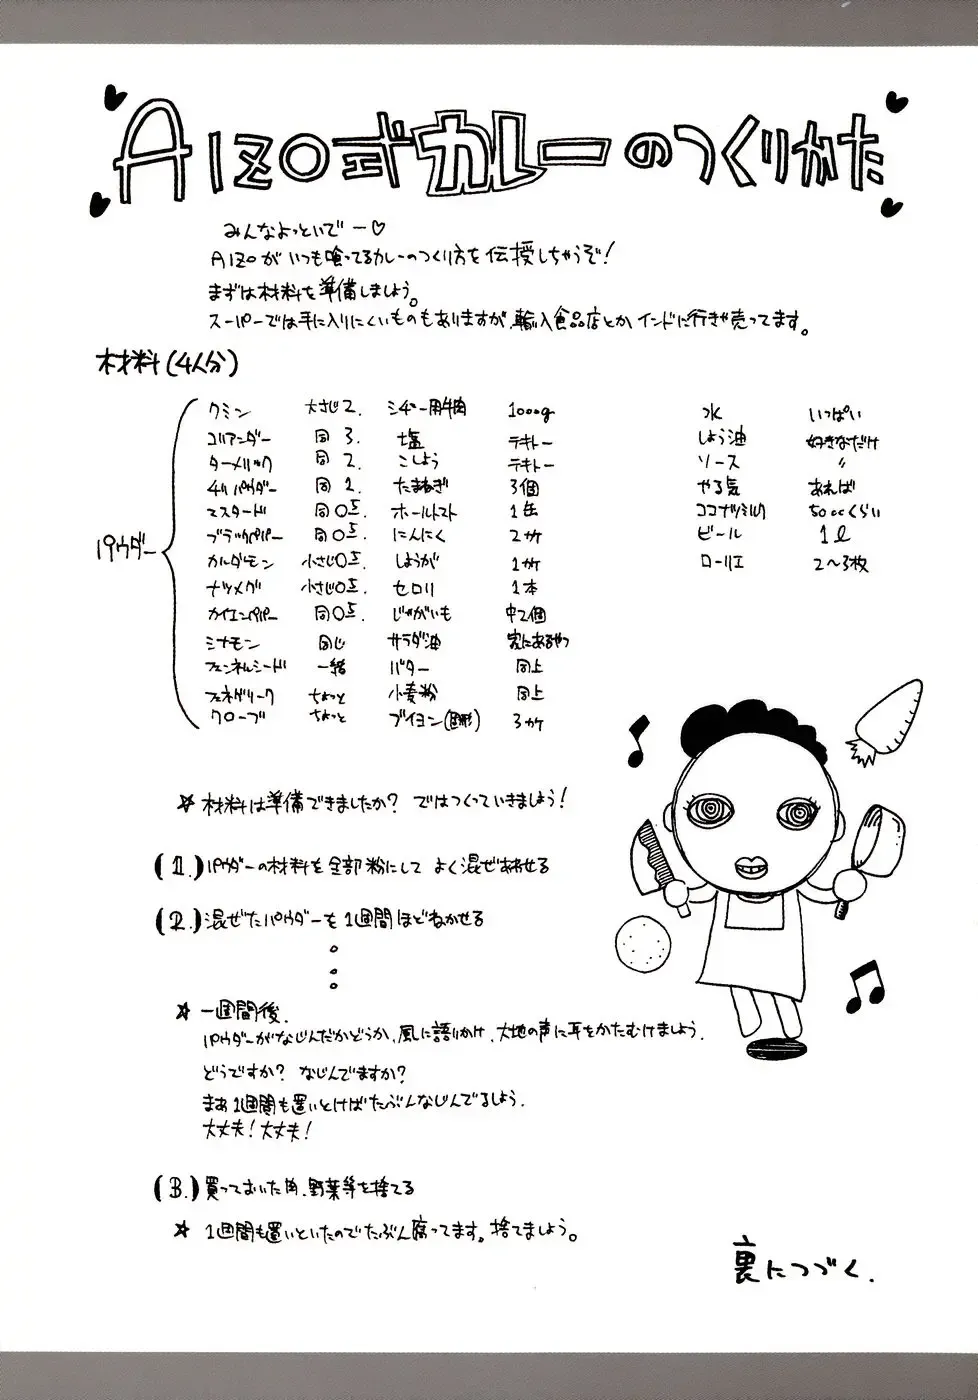 AIZO式カレーのつくりかた
みんなよっといでー♡
AIZOがいつも喰ってるカレーのつくり方を伝授しちゃうぞ!
まずは材料を準備しましょう。
スーパーでは手に入りにくいものもありますが、輸入食品店とかインドに行きゃ売ってます。
材料(4人分)
パウダー
クミン 大さじ2.
コリアンダー 同 3.
ターメリック 同 2.
チリパウダー 同 1.
マスタード 同 0.5.
ブラックペパー 同 0.5.
カルダモン 小さじ0.5.
ナツメグ 小さじ0.5.
カイエンペパー 同 0.5.
シナモン 同じ
フェンネルシード 一緒
フェネグリーク ちょっと
クローブ ちょっと
シチュー用牛肉 1000g
塩 テキトー
こしょう テキトー
たまねぎ 3個
ホールトマト 1缶
にんにく 2ヶ
しょうが 1ヶ
セロリ 1本
じゃがいも 中2個
サラダ油 家にあるやつ
バター 同上
小麦粉 同上
ブイヨン(固形) 3ヶ
水 いっぱい
しょう油 好きなだけ
ソース 〃
やる気 あれば
ココナツミルク 50ccくらい
ビール 1ℓ
ローリエ 2〜3枚
☆ 材料は準備できましたか? ではつくっていきましょう!
(1.) パウダーの材料を全部粉にして よく混ぜあわせる
(2.) 混ぜたパウダーを1週間ほどねかせる
☆ 一週間後.
パウダーがなじんだかどうか、風に語りかけ、大地の声に耳をかたむけましょう.
どうですか? なじんでますか?
まあ1週間も置いとけばたぶんなじんでるしょう.
大丈夫! 大丈夫!
(3.) 買っておいた肉、野菜等を捨てる
☆ 1週間も置いといたのでたぶん腐ってます。捨てましょう。
裏につづく.